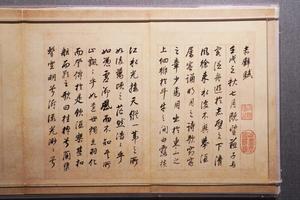 赤壁賦
壬戌之秋七月既望蘇子与
客泛舟遊於赤壁之下清
風徐来水波不興舉酒
属客誦明月之詩歌窈窕
之章少焉月出於東山之
上徘徊於斗牛之間白露橫
江水光接天縱一葦之所
如凌萬頃之茫然浩浩乎
如馮虚御風而不知其所
止飄飄乎如遺世獨立羽化
而登僊於是飲酒樂甚扣
舷而歌之歌曰桂棹兮蘭槳
擊空明兮泝流光渺渺兮